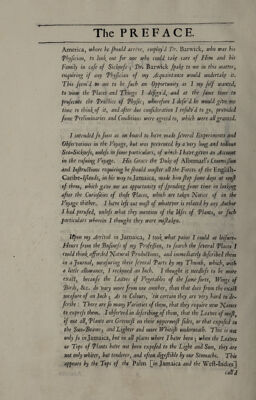 The PREFACE.
America, where he should arrive, employ'd Dr. Barwick, who was his
Physician, to look out for one who could take care of Him and his
Family in case of Sickness; Dr. Barwick spake to me in this matter,
requiring if any Physician of my Acquaintance would undertake it.
This seem'd to me to be such an Opportunity as I my self wanted,
to view the Places and Things I design'd, and at the same time to
prosecute the Practice of Physic; wherefore I desir'd he would give me
time to think of it, and after due consideration I resolv'd to go, provided
some Preliminaries and Conditions were agreed to, which were all granted.
I intended so soon as on board to have made several Experiments and
Observations in the Voyage, but was prevented by a very long and tedious
Sea-Sickness, unless in some particulars, of which I have given an Account
in the ensuing Voyage. His Grace the Duke of Albemarl's Commission
and Instructions requiring he should muster all the Forces of the English-
Caribe-Islands, in his way to Jamaica, made him stop some days at most
of them, which gave me an opportunity of spending some time in looking
after the Curiosities of those Places, which are taken Notice of in the
Voyage thither. I have left out most of whatever is related by any Author
I had perused, unless what they mention of the Uses of Plants, or such
particulars wherein I thought they were mistaken.
Upon my Arrival in Jamaica, I took what pains I could at leisure-
Hours from the Business of my Profession, to search the several Places I
could think afforded Natural Productions, and immediately described them
in a Journal, measuring their several Parts by my Thumb, which, with
a little allowance, I reckoned an Inch. I thought it needless to be more
exact, because the Leaves of Vegetables of the same sorts, Wings of
Birds, &c. do vary more from one another, than that does from the exact
measure of an Inch; As to Colours, 'tis certain they are very hard to de-
scribe: There are so many Varieties of them, that they require new Names
to express them. I observed in describing of them, that the Leaves of most,
if not all, Plants are Greenest on their uppermost sides, or that exposed to
the Sun-Beams, and Lighter and more Whitish underneath. This is not
only so in Jamaica, but in all places where I have been; when the Leaves
or Tops of Plants have not been exposed to the Light and Sun, they are
not only whiter, but tenderer, and often digestible by our Stomachs. This
appears by the Tops of the Palms [in Jamaica and the West-Indies]
call'd